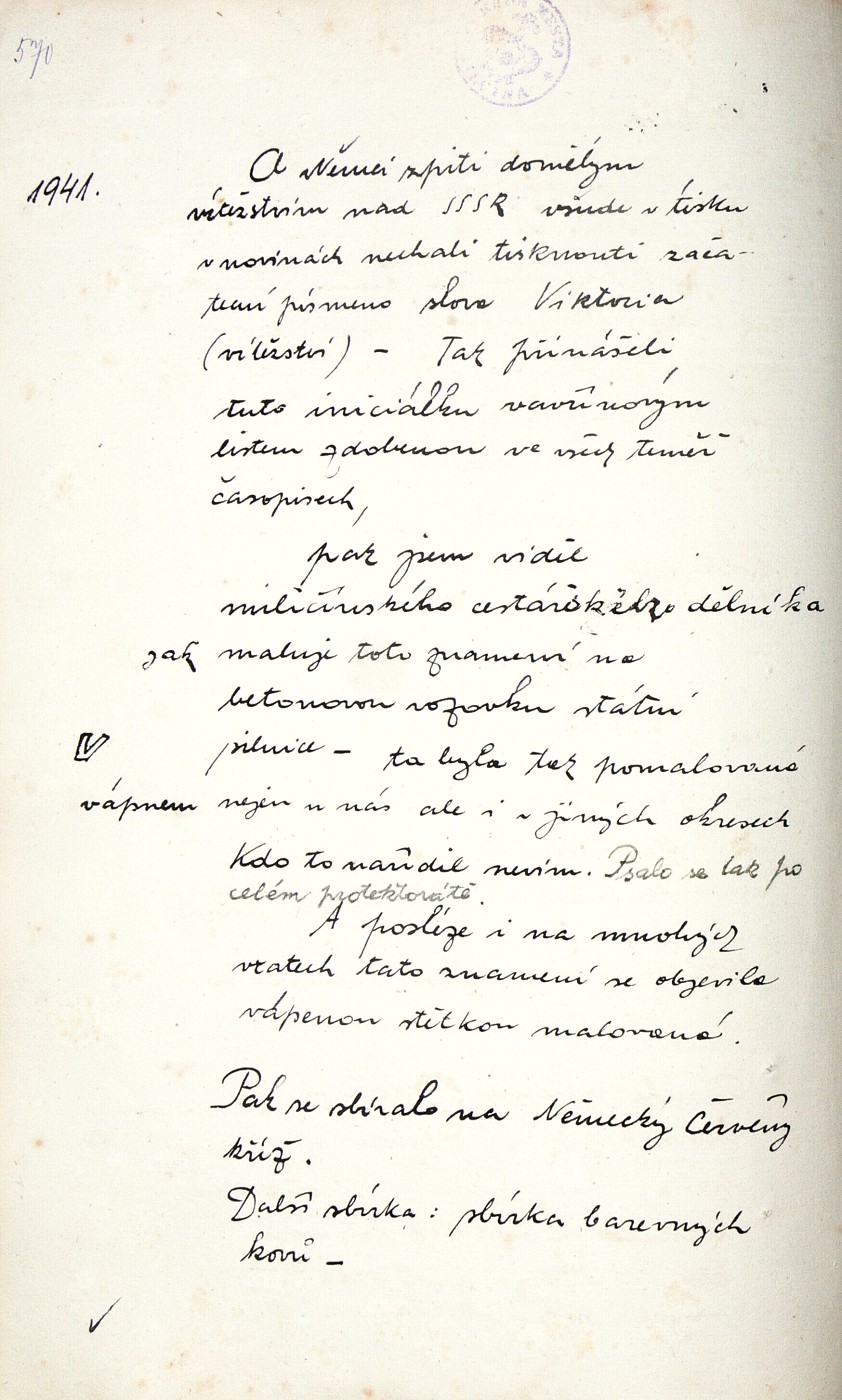 570
1941.
A Němci zpiti domělým
vítězstvím nad SSSR všude v tisku
v novinách nechali tisknouti začá-
teční písmeno slova Viktoria
(vítězství) - Tak přinášeli
tuto iniciálku vavřínovým
listem zdobenou ve všech téměř
časopisech,
pak jsem viděl
miličínského cestářského dělníka
jak maluje toto znamení na
betonovou vozovku státní
silnice - ta byla tak pomalovaná
V
vápnem nejen u nás ale i v jiných okresech
Kdo to nařídil nevím. Psalo se tak po
celém protektorátě.
A posléze i na mnohých
vratech tato znamení se objevila
vápenou štětkou malovaná.
Pak se sbíralo na Německý Červený
kříž.
Další sbírka: sbírka barevných
kovů -